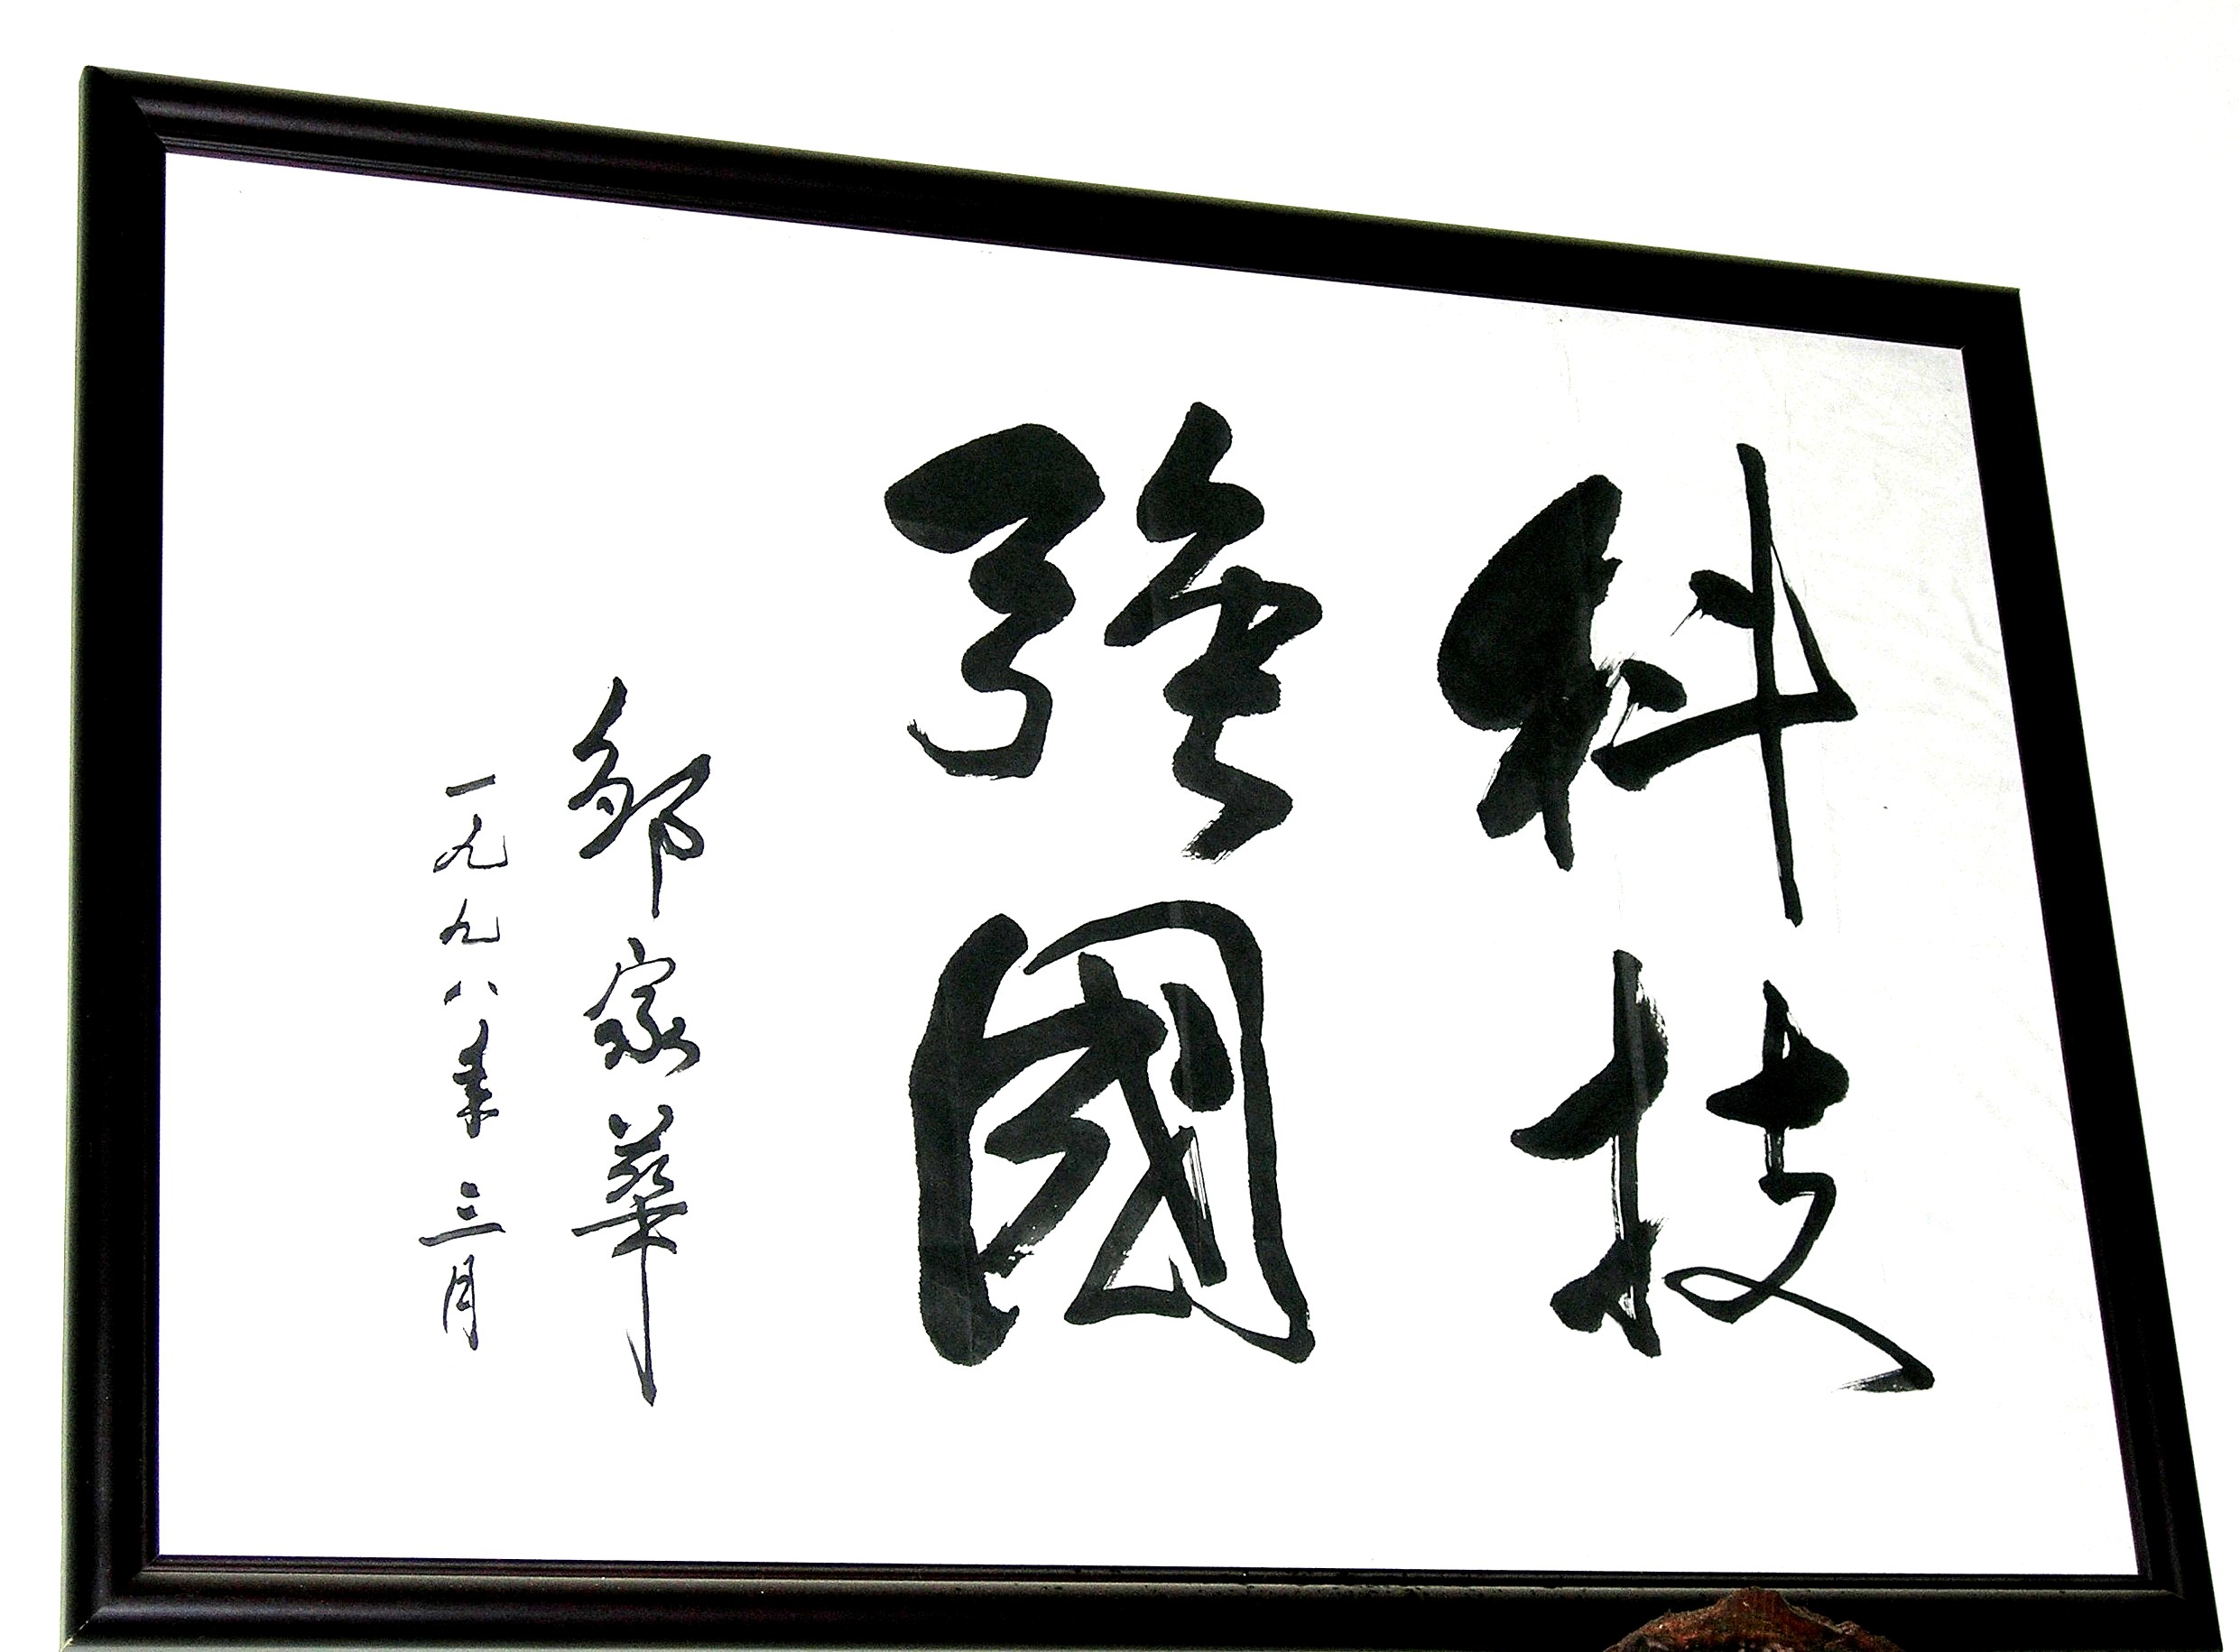 科技
強國
鄒家華
一九九八年三月